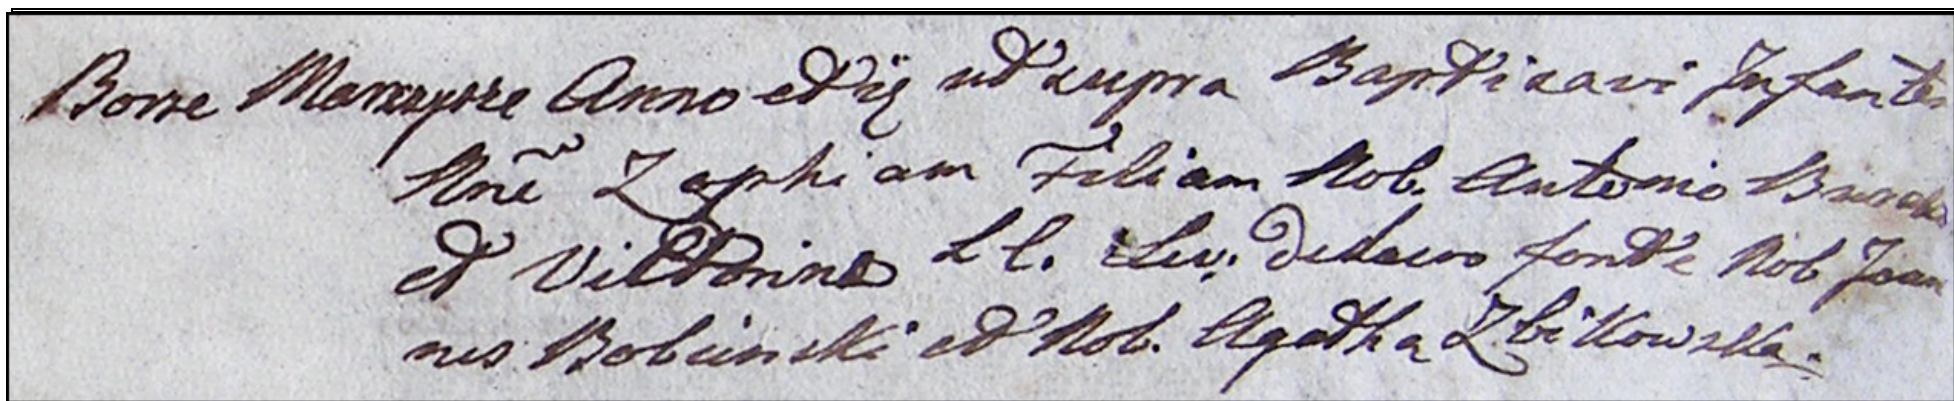 Anno et ij ut supra Baptisavi Infantem
Nnē Zophiam Filiam Nob. Antonio
et Victorine LC. Lev. De Sacro fonte Nob Joan
nes Bobinski et Nob. Agatha Zbikowska.